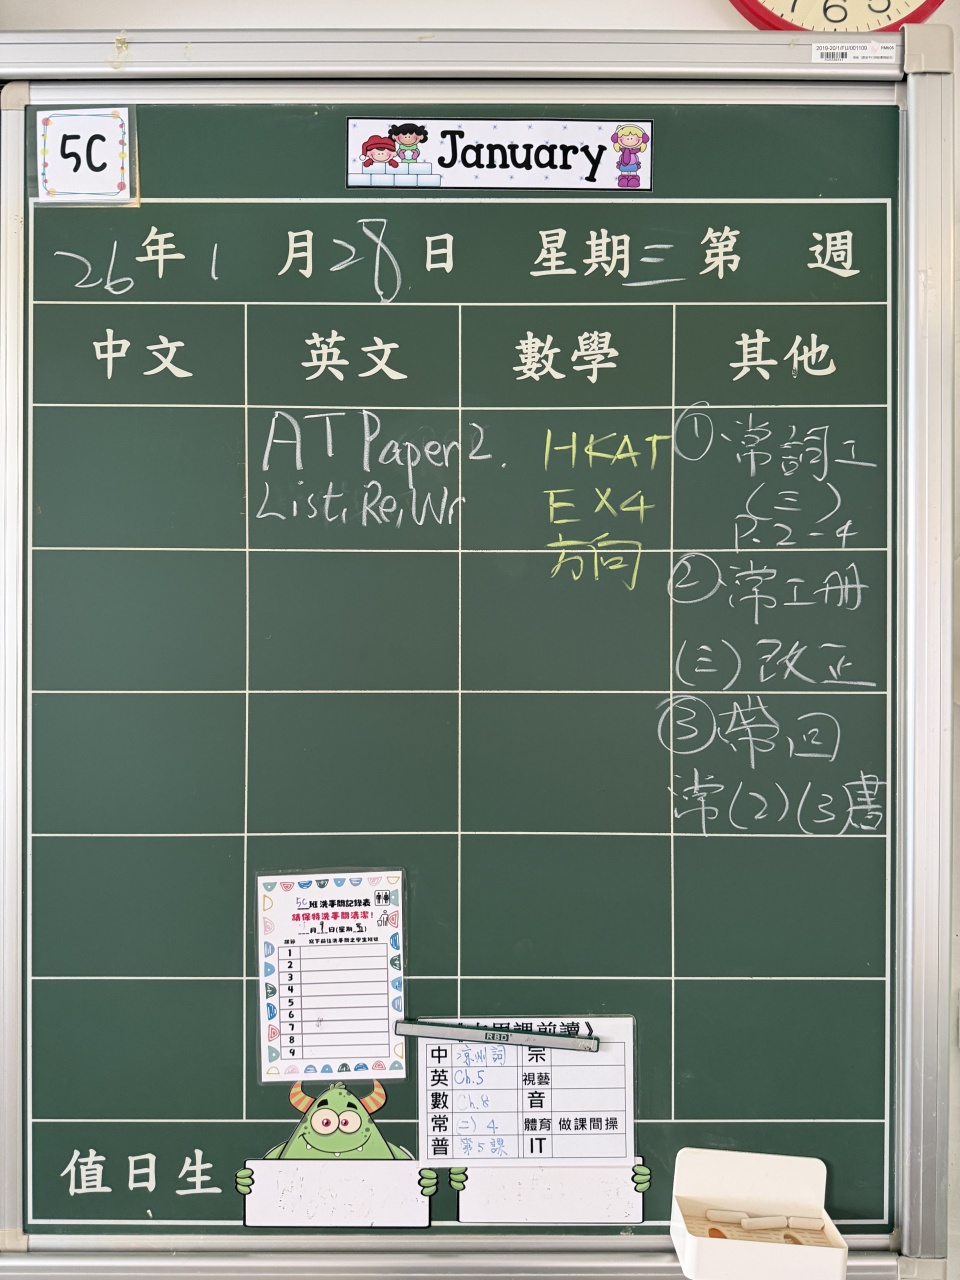 5 6 7
2019-20/1/FU/001109
5C
January
26年1月28日 星期三 第 週
中文 英文 數學 其他
AT Paper 2.
List, Re, Wr
HKAT
E X4
方向
①、常詞工
(三)
P.2-4
②、常工冊
(三)改正
③、帶回
常(2)(3)書
5C班洗手間記錄表
請保持洗手間清潔!
月 日(星期五)
課節 寫下前往洗手間之學生班號
1
2
3
4
5
6
7
8
9
RBD
課前讀》
中 涼州詞 宗
英 Ch.5 視藝
數 Ch.8 音
常 (二) 4 體育 做課間操
普 第5課 IT
值日生